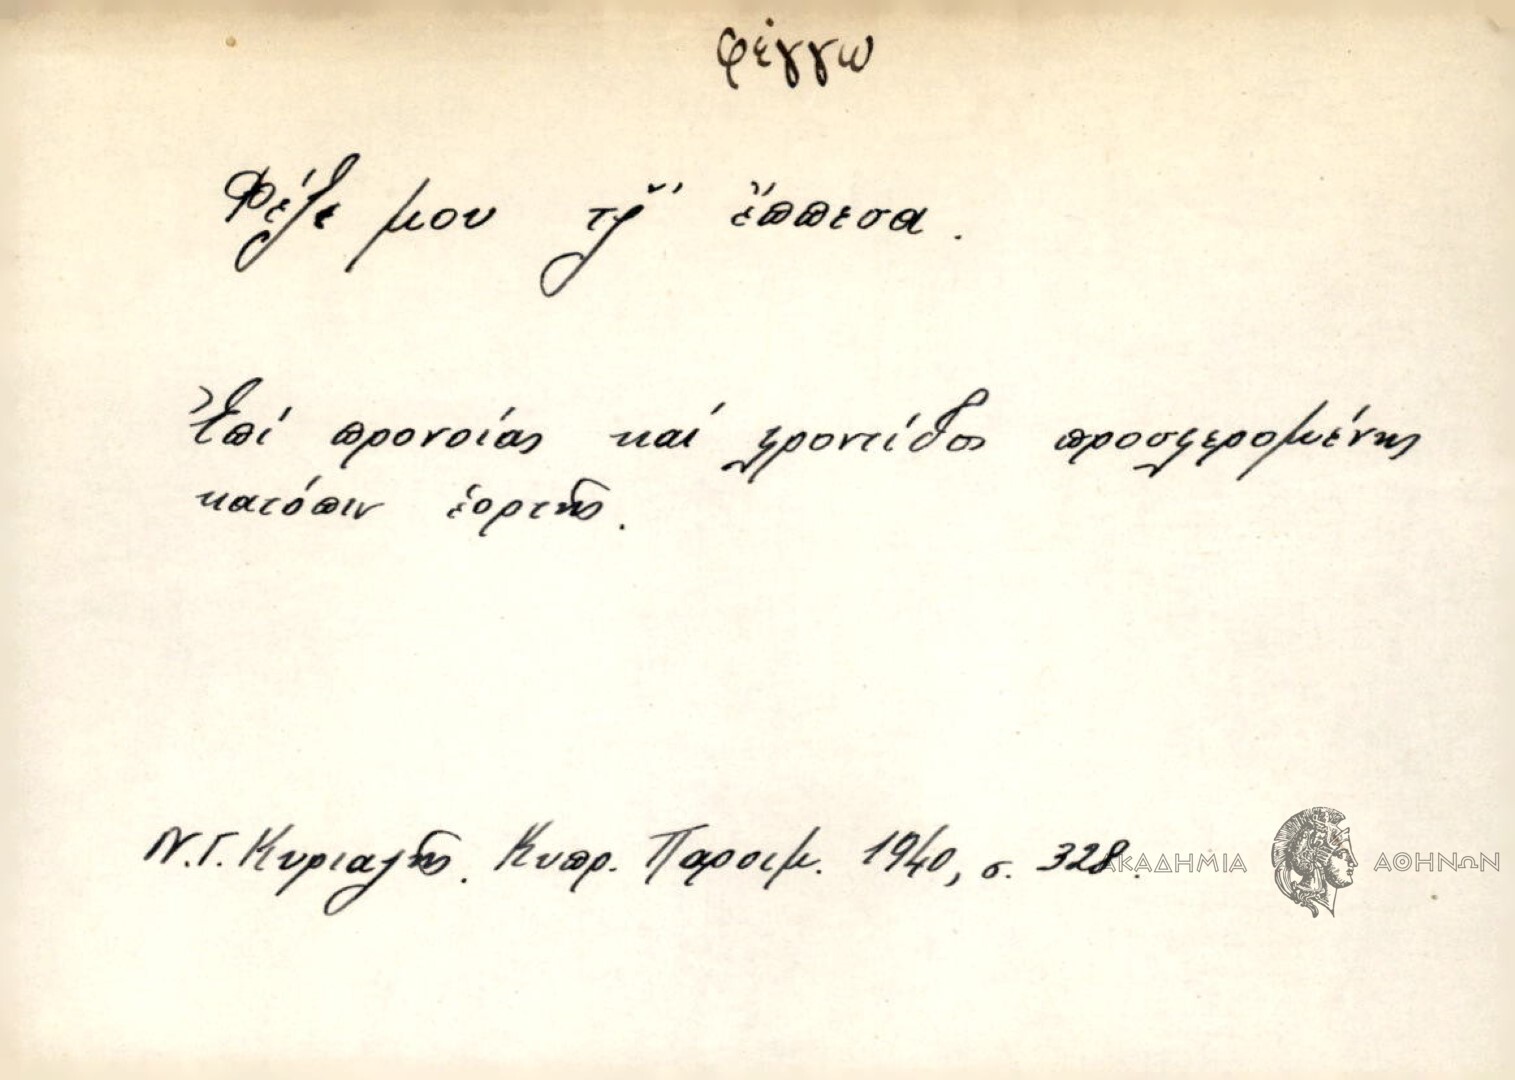 φέγγω
Φέξε μου τζ̆' ἔππεσα.
Ἐπί προνοίας καί φροντίδος προσφερομένης
κατόπιν ἑορτῆς.
Ν.Γ. Κυριαζῆς. Κυπρ. Παροιμ. 1940, σ. 328.
ΑΚΑΔΗΜΙΑ ΑΘΗΝΩΝ